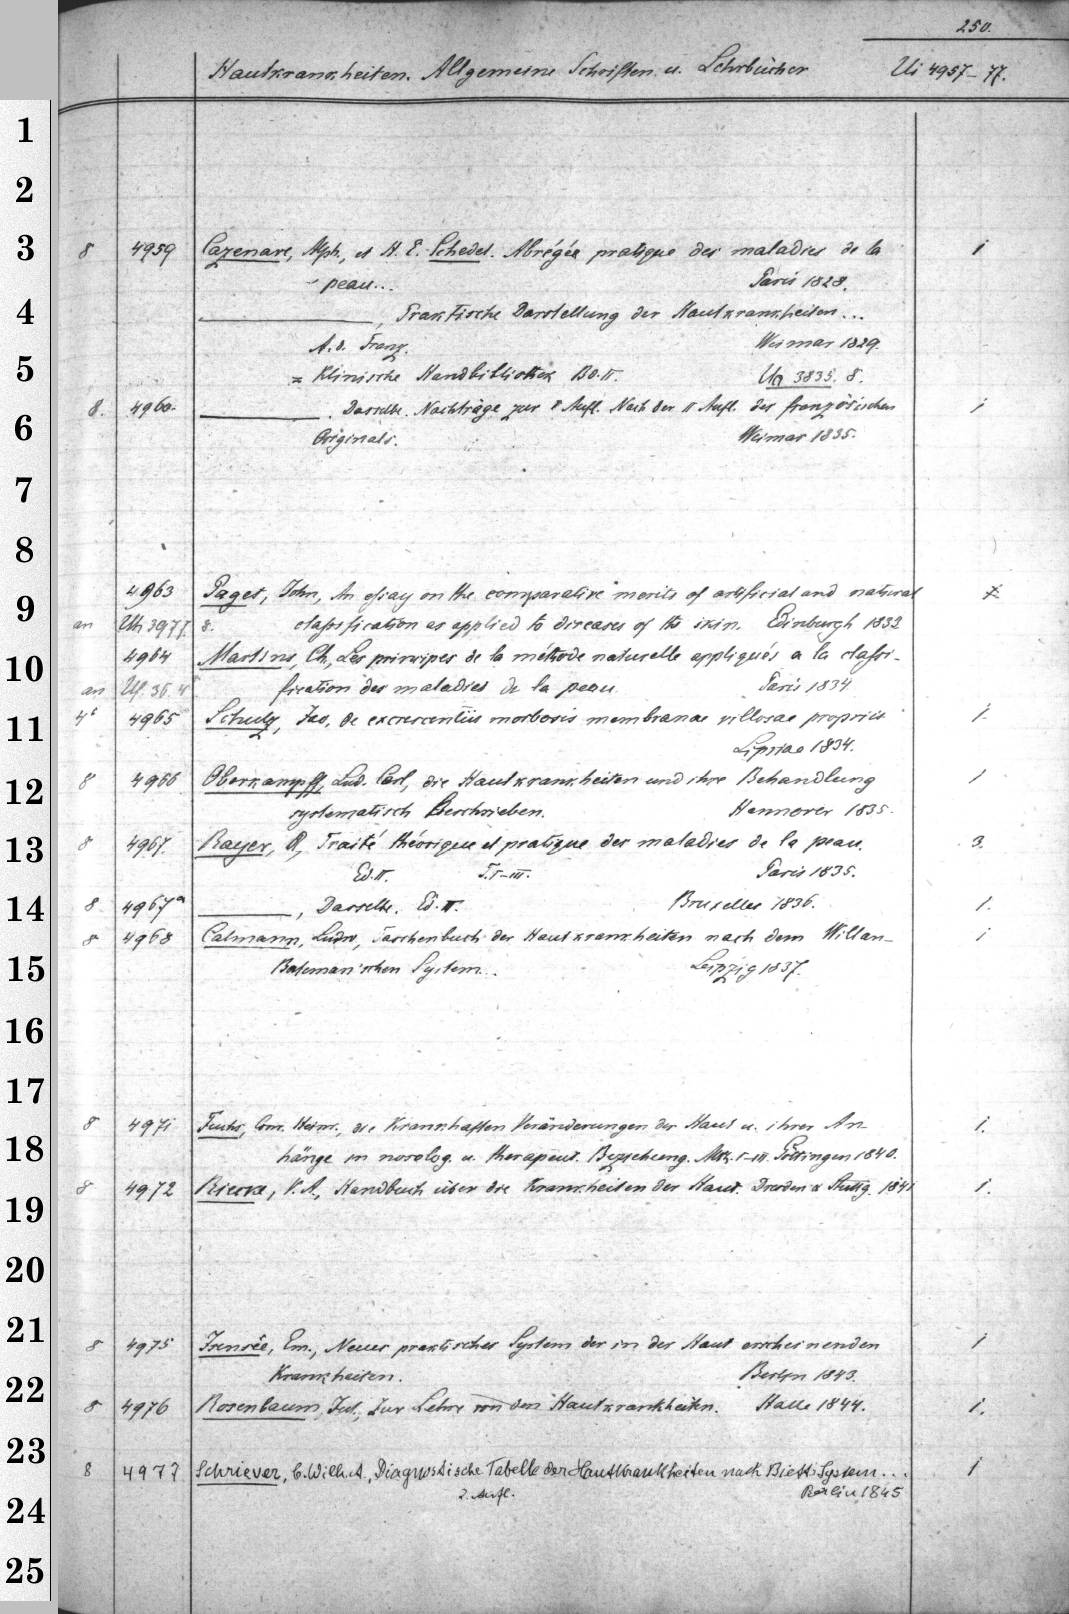 250.
Hautkrankheiten. Allgemeine Schriften u. Lehrbücher Ui 4957-77.
1
2
3
8 4959 Cazenave, Alph., et H. E. Schedel. Abrégée pratique des maladies de la 1
peau... Paris 1828.
4
, Praktische Darstellung der Hautkrankheiten...
A. d. Franz. Weimar 1829.
5
= Klinische Handbibliothek Bd. II. Ua 3835. 8.
8. 4960. . Dasselbe. Nachträge zur Aufl. Nach der II Aufl. des französischen 1
6
Originals. Weimar 1835.
7
8
4963 Paget, John, An essay on the comparative merits of artificial and natural
9
an Uh 3977. 8. classification as applied to diseases of the skin. Edinburgh 1833
10
4964 Martins, Ch., Les principes de la méthode naturelle appliqués a la classi-
an fication des maladies de la peau. Paris 1834
11
4° 4965 Schulz, Jac, de excrescentiis morbosis membranae villosae propriis 1.
Lipsiae 1834.
12
8 4966 Oberkampff, Lud. Carl, die Hautkrankheiten und ihre Behandlung 1
systematisch Beschrieben. Hannover 1835.
13
8 4967. Rayer, P., Traité théorique et pratique des maladies de la peau. 3.
Ed. II. T. I-III. Paris 1835.
14
8 4967a , Dasselbe. Ed. II. Bruxelles 1836. 1.
8 4968 Calmann, Ludw, Taschenbuch der Hautkrankheiten nach dem Willan- 1
15
Bateman'schen System... Leipzig 1837.
16
17
8 4971 Fuchs, Conr. Heinr., die Krankhaften Veränderungen der Haut u. ihrer An 1.
18
hänge in nosolog. u. therapeut. Beziehung. Abth. I-III. Göttingen 1840.
8 4972 Riecke, V. A., Handbuch über die Krankheiten der Haut. Dresden & Stuttg. 1841 1.
19
20
21
8 4975 Isensée, Em., Neues praktisches System der in der Haut erscheinenden 1
22
Krankheiten. Berlin 1843.
8 4976 Rosenbaum, Jul., Zur Lehre von den Hautkrankheiten. Halle 1844. 1.
23
8 4977 Schriever, C. Wilh. A., Diagnostische Tabelle der Hautkrankheiten nach Biett's System... 1
2. Aufl. Berlin 1845
24
25